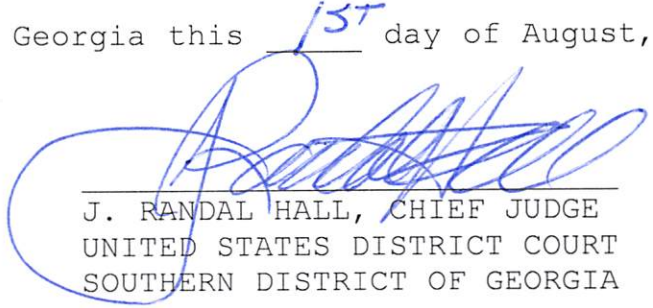 Georgia this 1ST day of August,
J. RANDAL HALL, CHIEF JUDGE
UNITED STATES DISTRICT COURT
SOUTHERN DISTRICT OF GEORGIA